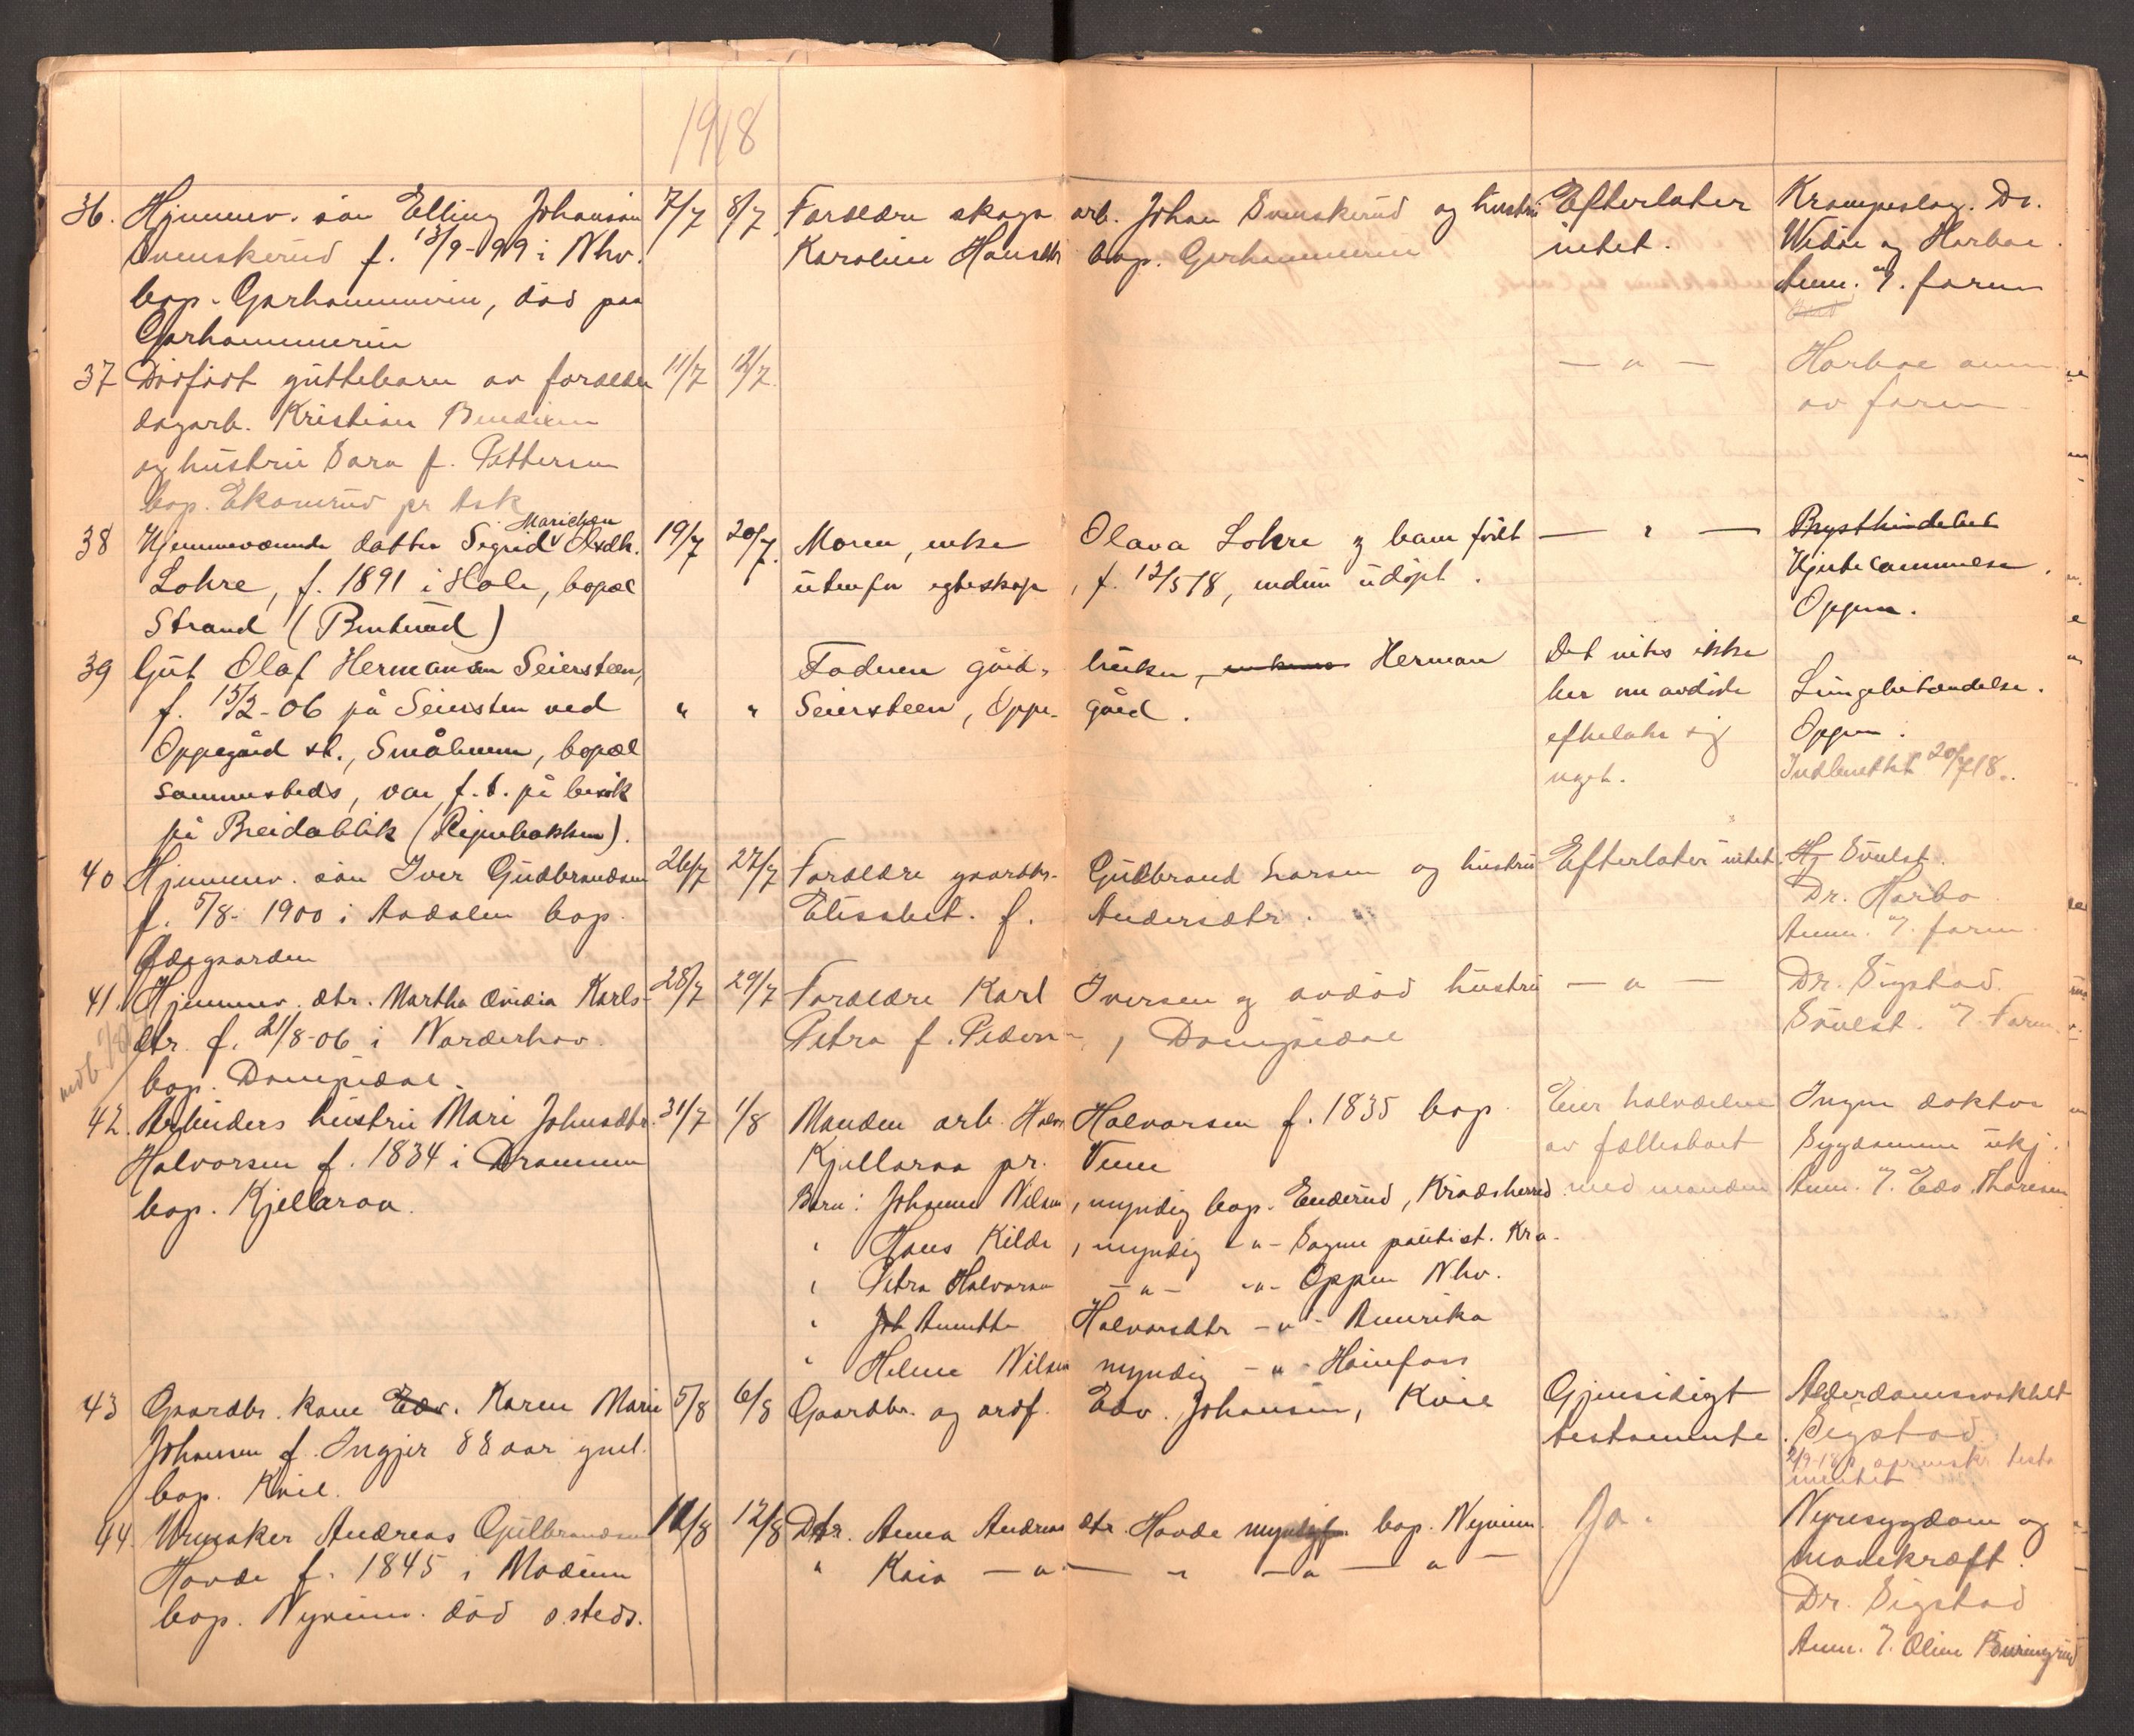 1918
36. Hjemmev. søn Elling Johansen 7/7 8/7 Forældre skogs arb. Johan Svenskerud og hustru Efterlater Krampeslag. Dr.
Svenskerud f. 13/9-99 i Nhv. Karoline Hansdtr bop. Garhammerin intet. Wibe og Harboe.
bop. Garhammerin, død paa Anm. af. faren
Garhammerin
37 Dødfødt guttebarn av forældre 11/7 12/7 — " — Harboe anm
dagarb. Kristian Bendixen av faren
og hustru Sara f. Pettersen
bop. Ekornrud pr Ask
Marichen
38 Hjemmeværende datter Sigrid Olsdtr. 19/7 20/7. Moren, enke Olava Lohre og barn født — " — Brysthindebet
Lohre, f. 1891 i Hole, bopæl utenfor egteskap, f. 12/5 18, endnu udøpt. Hjertelammelse.
Strand (Benterud) Oppen.
39 Gut Olaf Hermansen Seiersteen, Faderen gård- bruker, Herman Det vites ikke
f. 15/2-06 på Seiersten ved " " Seiersteen, Oppe- gård. her om avdøde Lungebetændelse.
Oppegård st., Smålenene, bopæl efterlater sig Oppen.
sammesteds, var f.t. på besøk noget. Indberettet 20/7 18.
på Breidablik (Ripenbakken).
40 Hjemmev. søn Iver Gudbrandsen 26/7 27/7 Forældre gaardbr. Gudbrand Larsen og hustru Efterlater intet. Hj Svulst.
f. 5/8-1900 i Aadalen bop. Elisabet. f. Andersdtr. Dr. Harbo
Anm. af. faren.
41. Hjemmev. dtr. Martha Ovidia Karls- 28/7 29/7 Forældre Karl Iversen og avdød hustru — " — Dr. Sigstad.
dtr f. 21/8-06 i Norderhov. Petra f. Pedersen, Dompidal Svulst. af Faren.
bop. Dompidal.
42. Arbeiders hustru Mari Johnsdtr. 31/7 1/8 Manden arb. Halvor Halvorsen f. 1835 bop. Eier halvdelen Ingen doktor
Halvorsen f. 1834 i Drammen Kjellaraa pr. Veme av fællesboet Sygdommen ukj.
bop. Kjellaraa. Barn: Johanne Nilsen, myndig bop. Enderud, Krødsherred med manden Anm. af. Edv. Thoresen
" Hans Kilde, myndig -"- Sagene politist. Kra.
" Petra Halvorsen -"- -"- Oppen Nhv.
" Anette Halvorsdtr -"- Amerika
" Helene Nilsen myndig -"- Hønefoss
43 Gaardbr. kone Edv. Karen Marie 5/8 6/8 Gaardbr. og ordf. Edv. Johansen, Kvie Gjensidigt Alderdomssvakhet
Johansen f. Ingjer 88 aar gml. testamente. Sigstad.
bop. Kvie. testamentet
44. Urmaker Andreas Gulbrandsen 11/8 12/8 Dtr. Anna Andreas dtr. Hovde myndig bop. Nyveien. Ja. Nyresygdom og
Hovde f. 1845 i Modum " Kaia — " — " — " — " — mavekræft.
bop. Nyveien. død s.steds. Dr. Sigstad
Anm. af. Oline